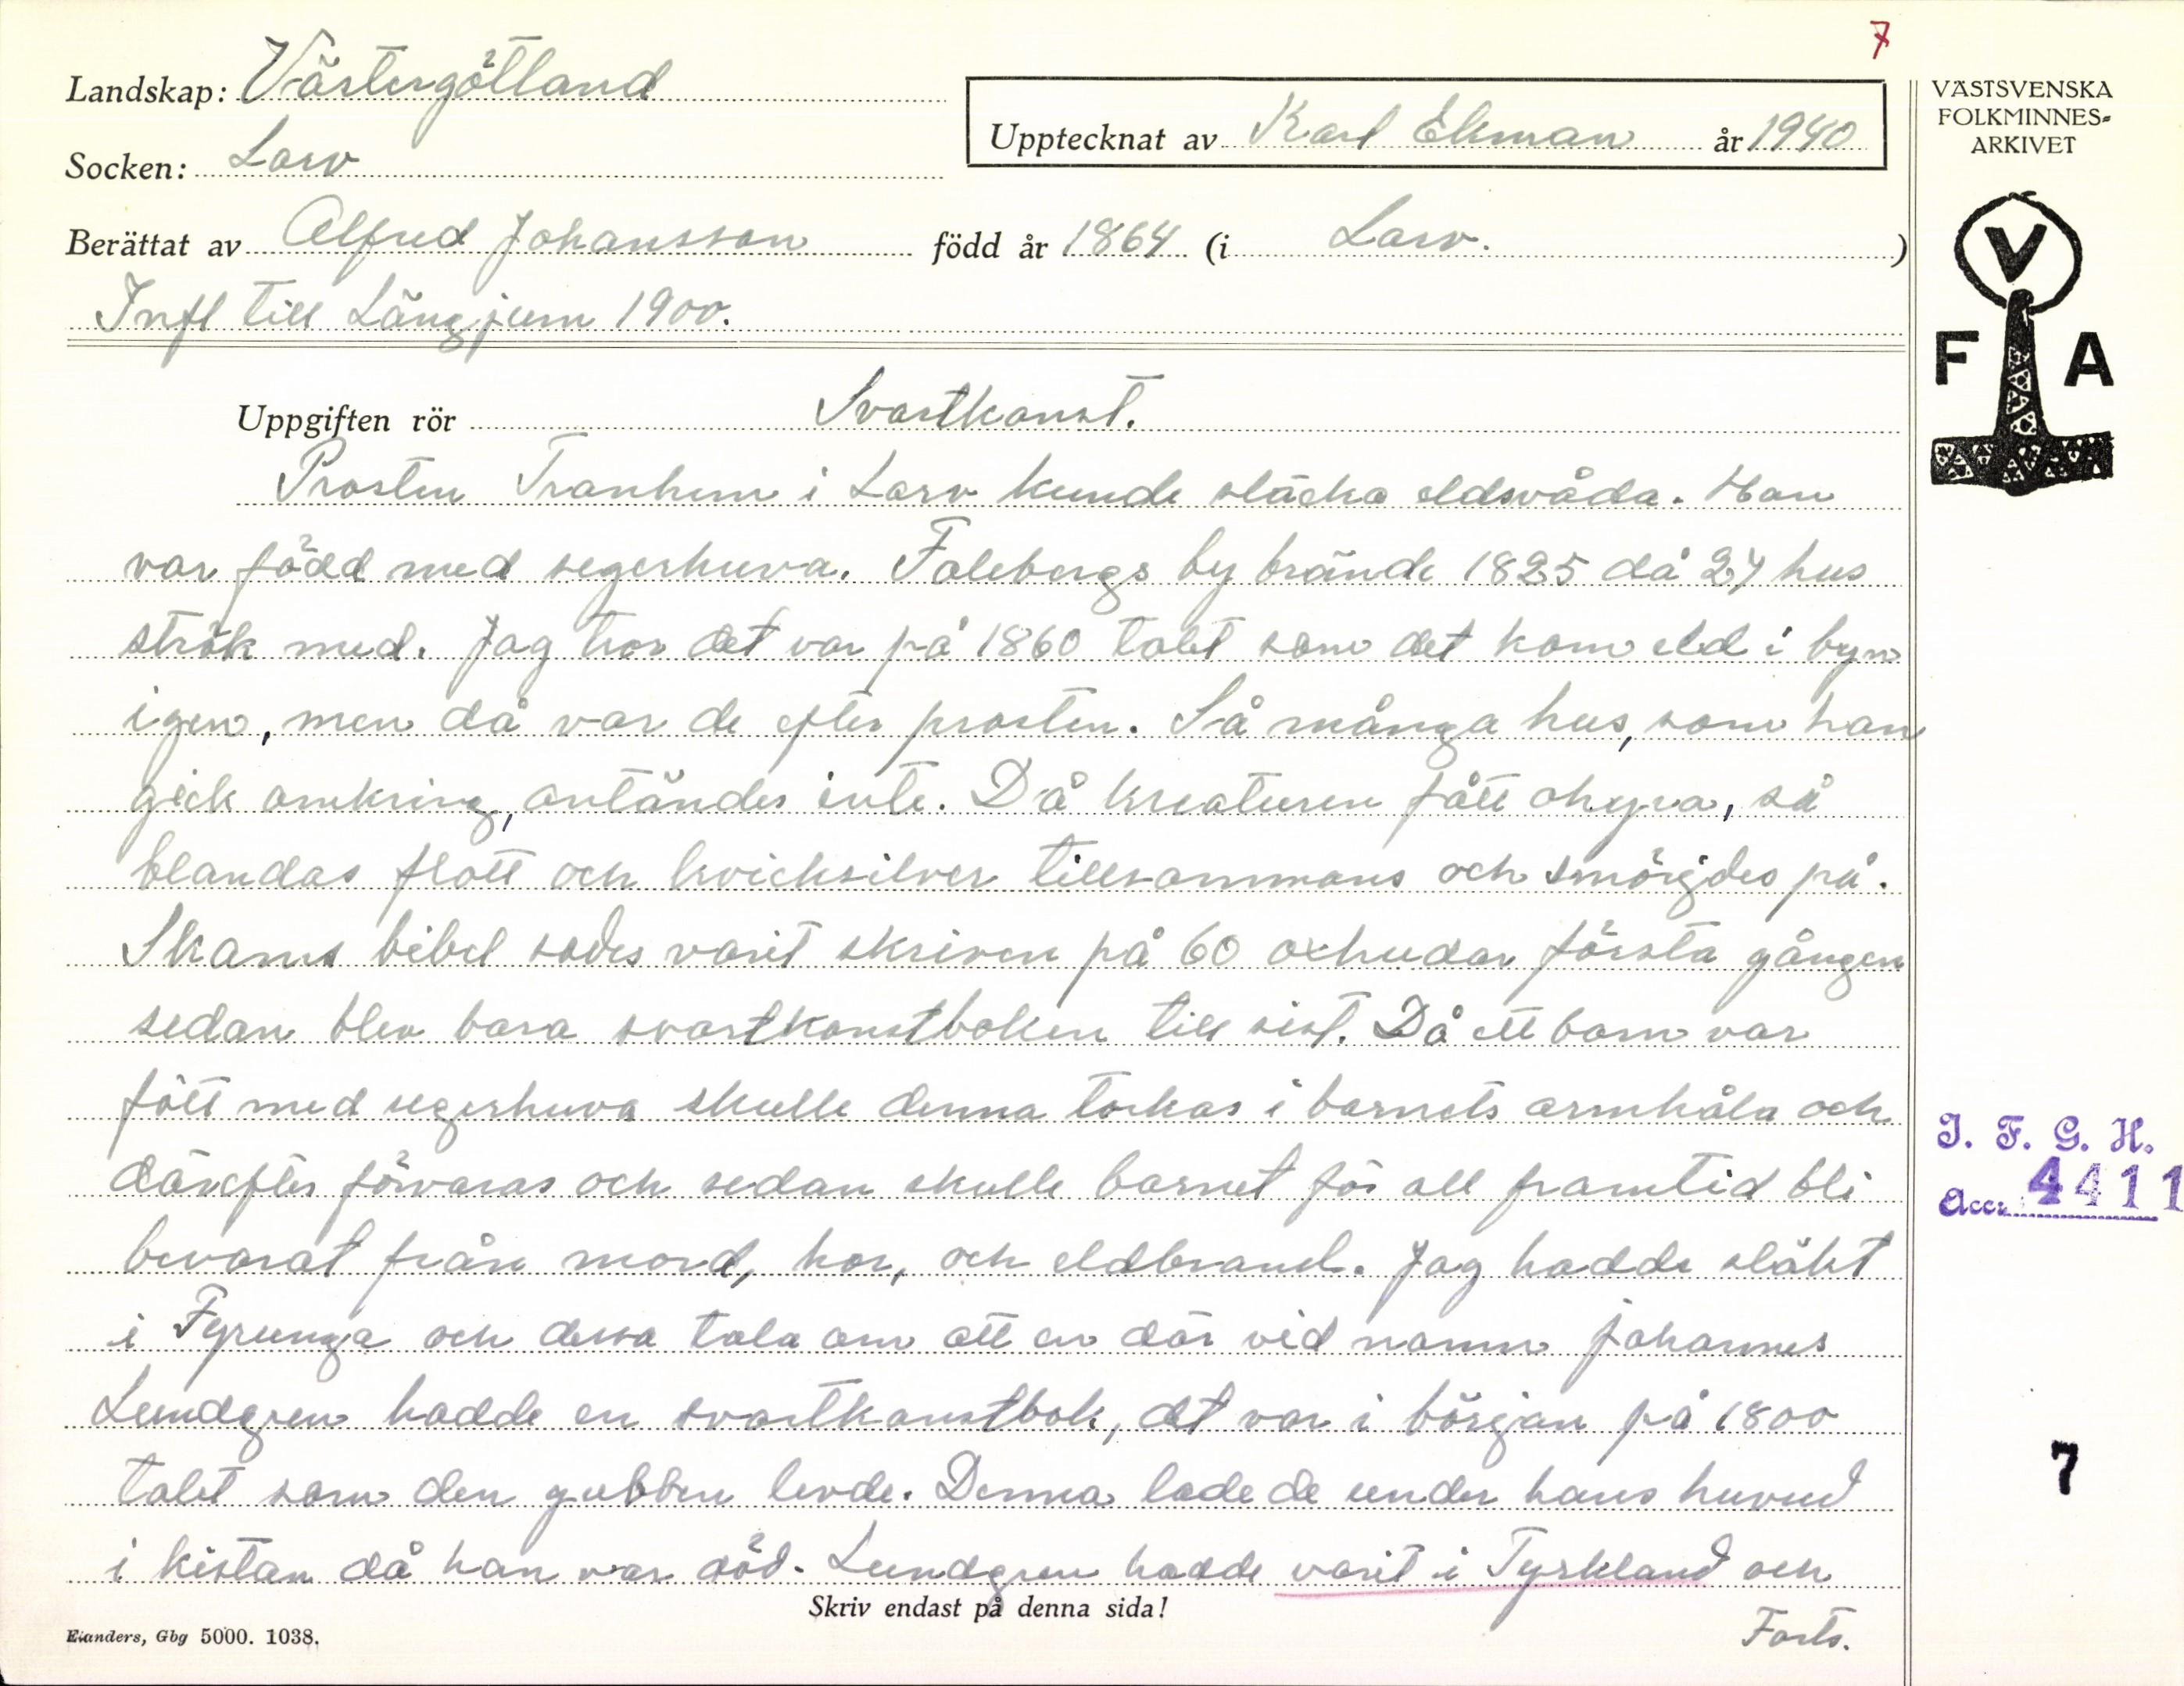 7
Landskap: Västergötland
Socken: Larv
Upptecknat av Karl Ekman år 1940
Berättat av Alfred Johansson född år 1864 (i Larv.)
Infl till Längjum 1900.
Uppgiften rör Svartkonst.
Prosten Tranhem i Larv kunde släcka eldsvåda. Han
var född med segerhuva. Falebergs by brände 1825 då 27 hus
strök med. Jag tror det var på 1860 talet som det kom eld i byn
igen, men då var de efter prosten. Så många hus, som han
gick omkring, antändes inte. Då kreaturen fått ohyra, så
blandas flott och kvicksilver tillsammans och smörjdes på.
Skams bibel sades varit skriven på 60 oxhudar första gången
sedan blev bara svartkonstboken till sist. Då ett barn var
fött med segerhuva skulle denna torkas i barnets armhåla och
därefter förvaras och sedan skulle barnet för all framtid bli
bevarat från mord, hor, och eldbrand. Jag hadde släkt
i Fyrunga och dessa tala om att en där vid namn Johannes
Lundgren hadde en svartkonstbok, det var i början på 1800
talet som den gubben levde. Denna lade de under hans huvud
i kistan då han var död. Lundgren hadde varit i Tyskland och
Forts.
Skriv endast på denna sida!
Elanders, Gbg 5000. 1038.
VÄSTSVENSKA
FOLKMINNES-
ARKIVET
V
F A
I. F. G. H.
Acc. 4411
7